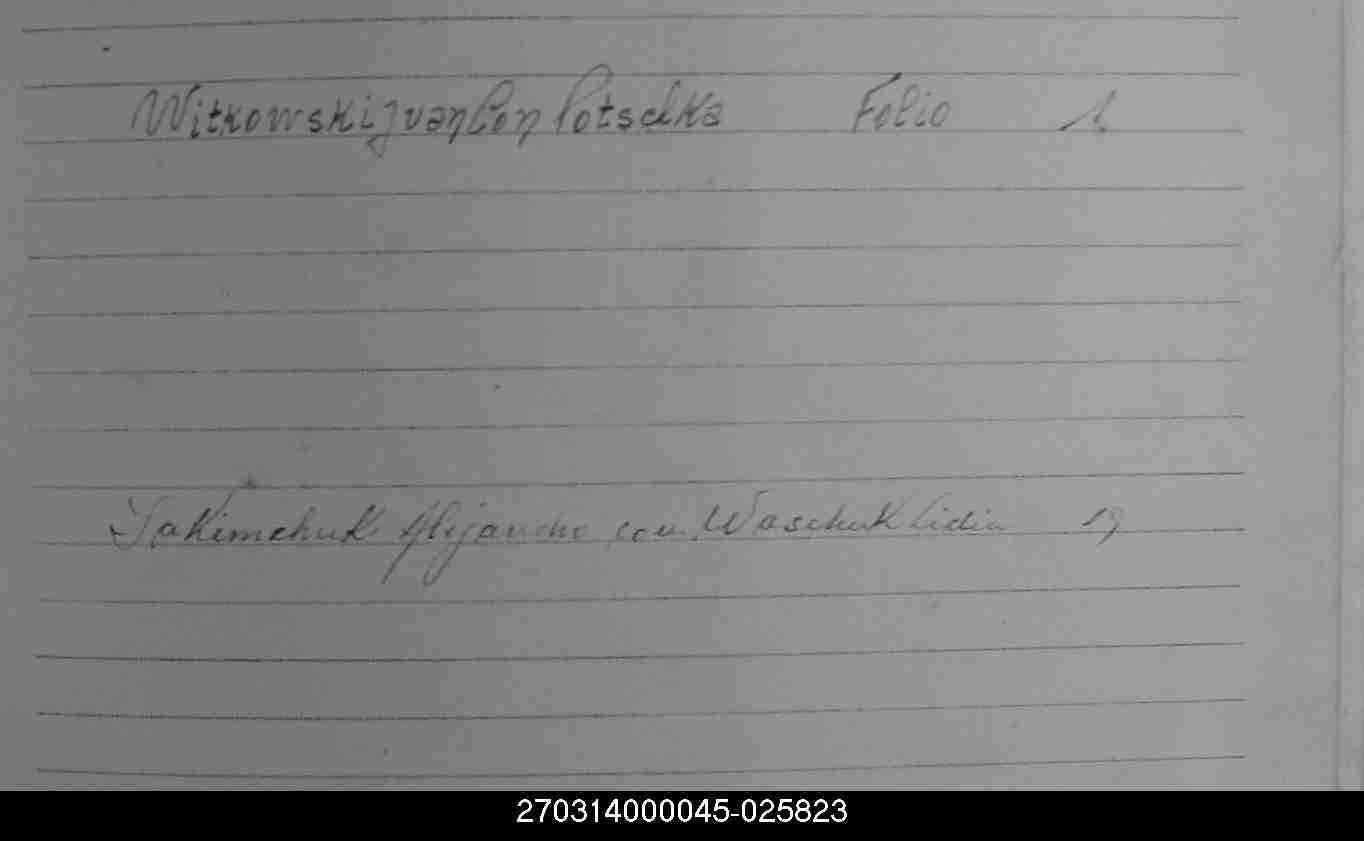 Witkowski Juan Con Potschka Folio 1
Jakimchuk Alejandro con Waschuk Lidia 19
270314000045-025823